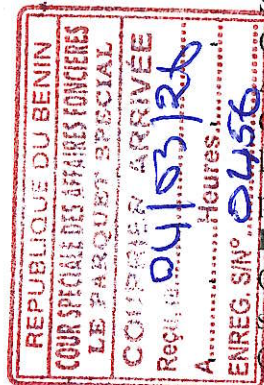 REPUBLIQUE DU BENIN
COUR SPECIALE DES AFFAIRES FONCIERES
LE PARQUET SPECIAL
COURRIER ARRIVÉE
Reçu, 04/03/26
A Heures
ENREG. S/N° 0456